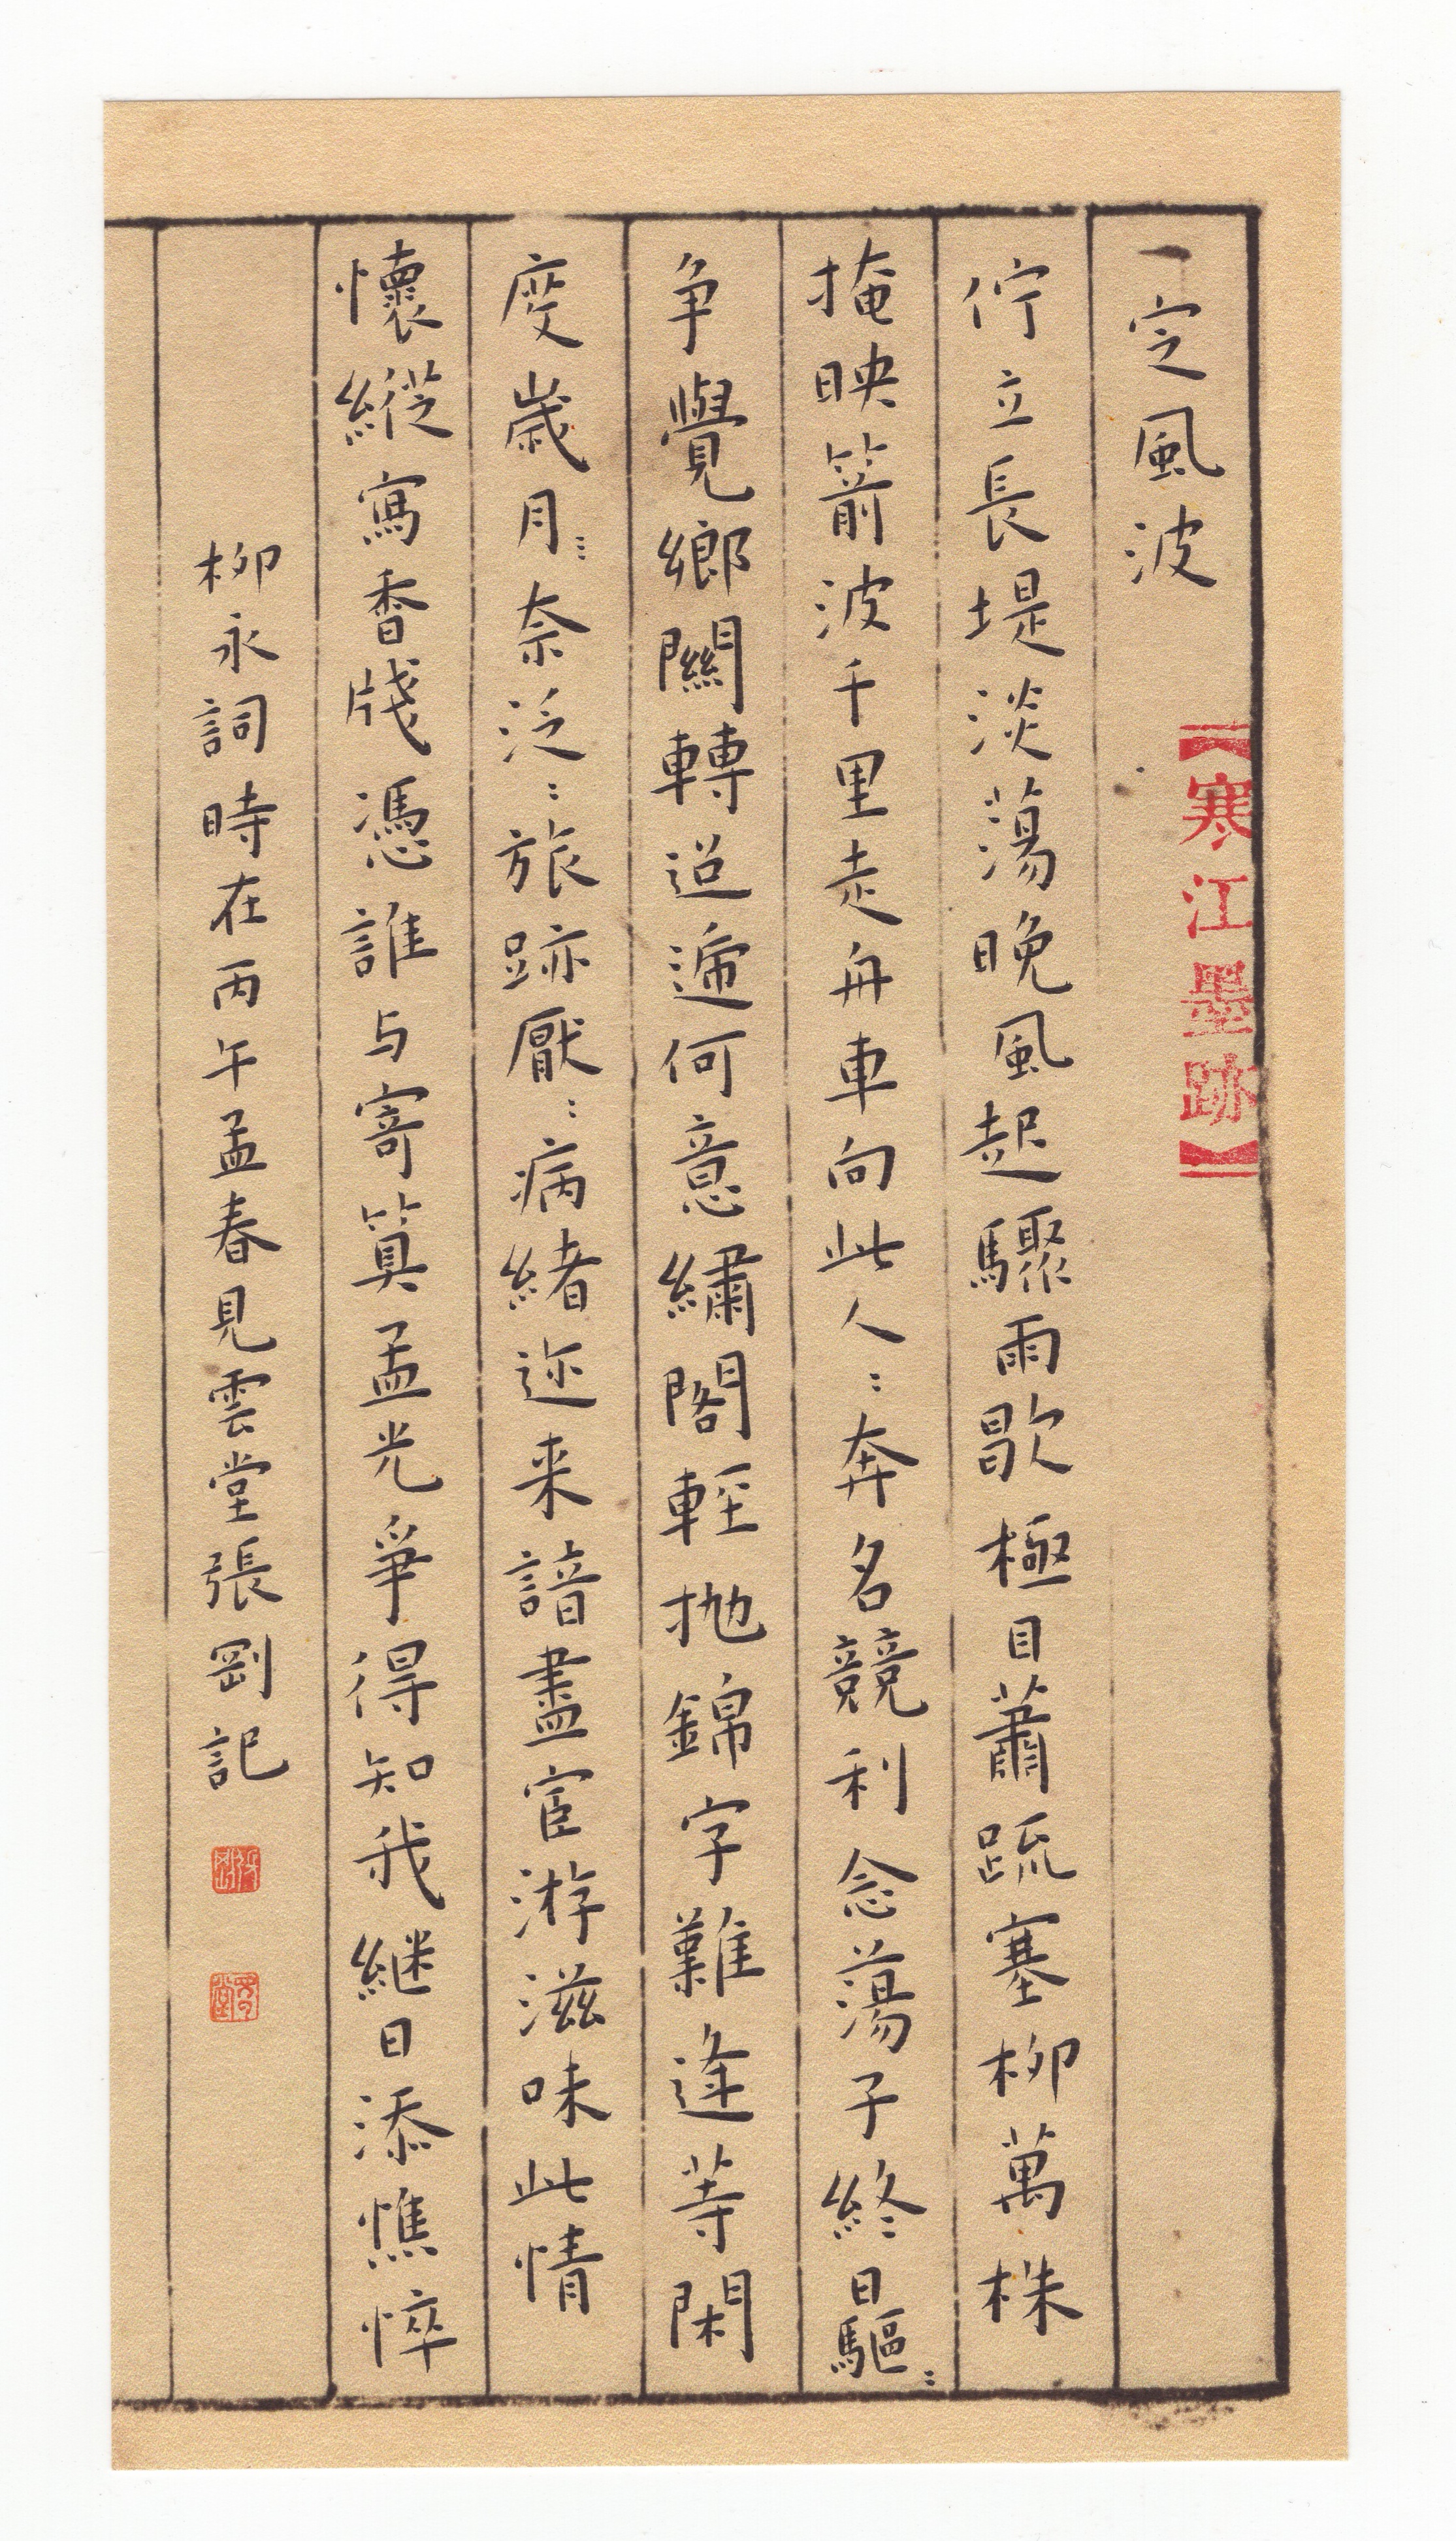 定風波
【寒江墨跡】
佇立長堤淡蕩晚風起驟雨歇極目蕭疏塞柳萬株
掩映箭波千里走舟車向此人〻奔名競利念蕩子終日驅〻
争覺鄉關轉迢遞何意繡閣輕抛錦字難逢等閑
度歲月奈泛〻旅跡厭〻病緒迩来諳盡宦游滋味此情
懷縱寫香牋憑誰与寄算孟光爭得知我継日添憔悴
柳永詞時在丙午孟春見雲堂張剛記
張剛